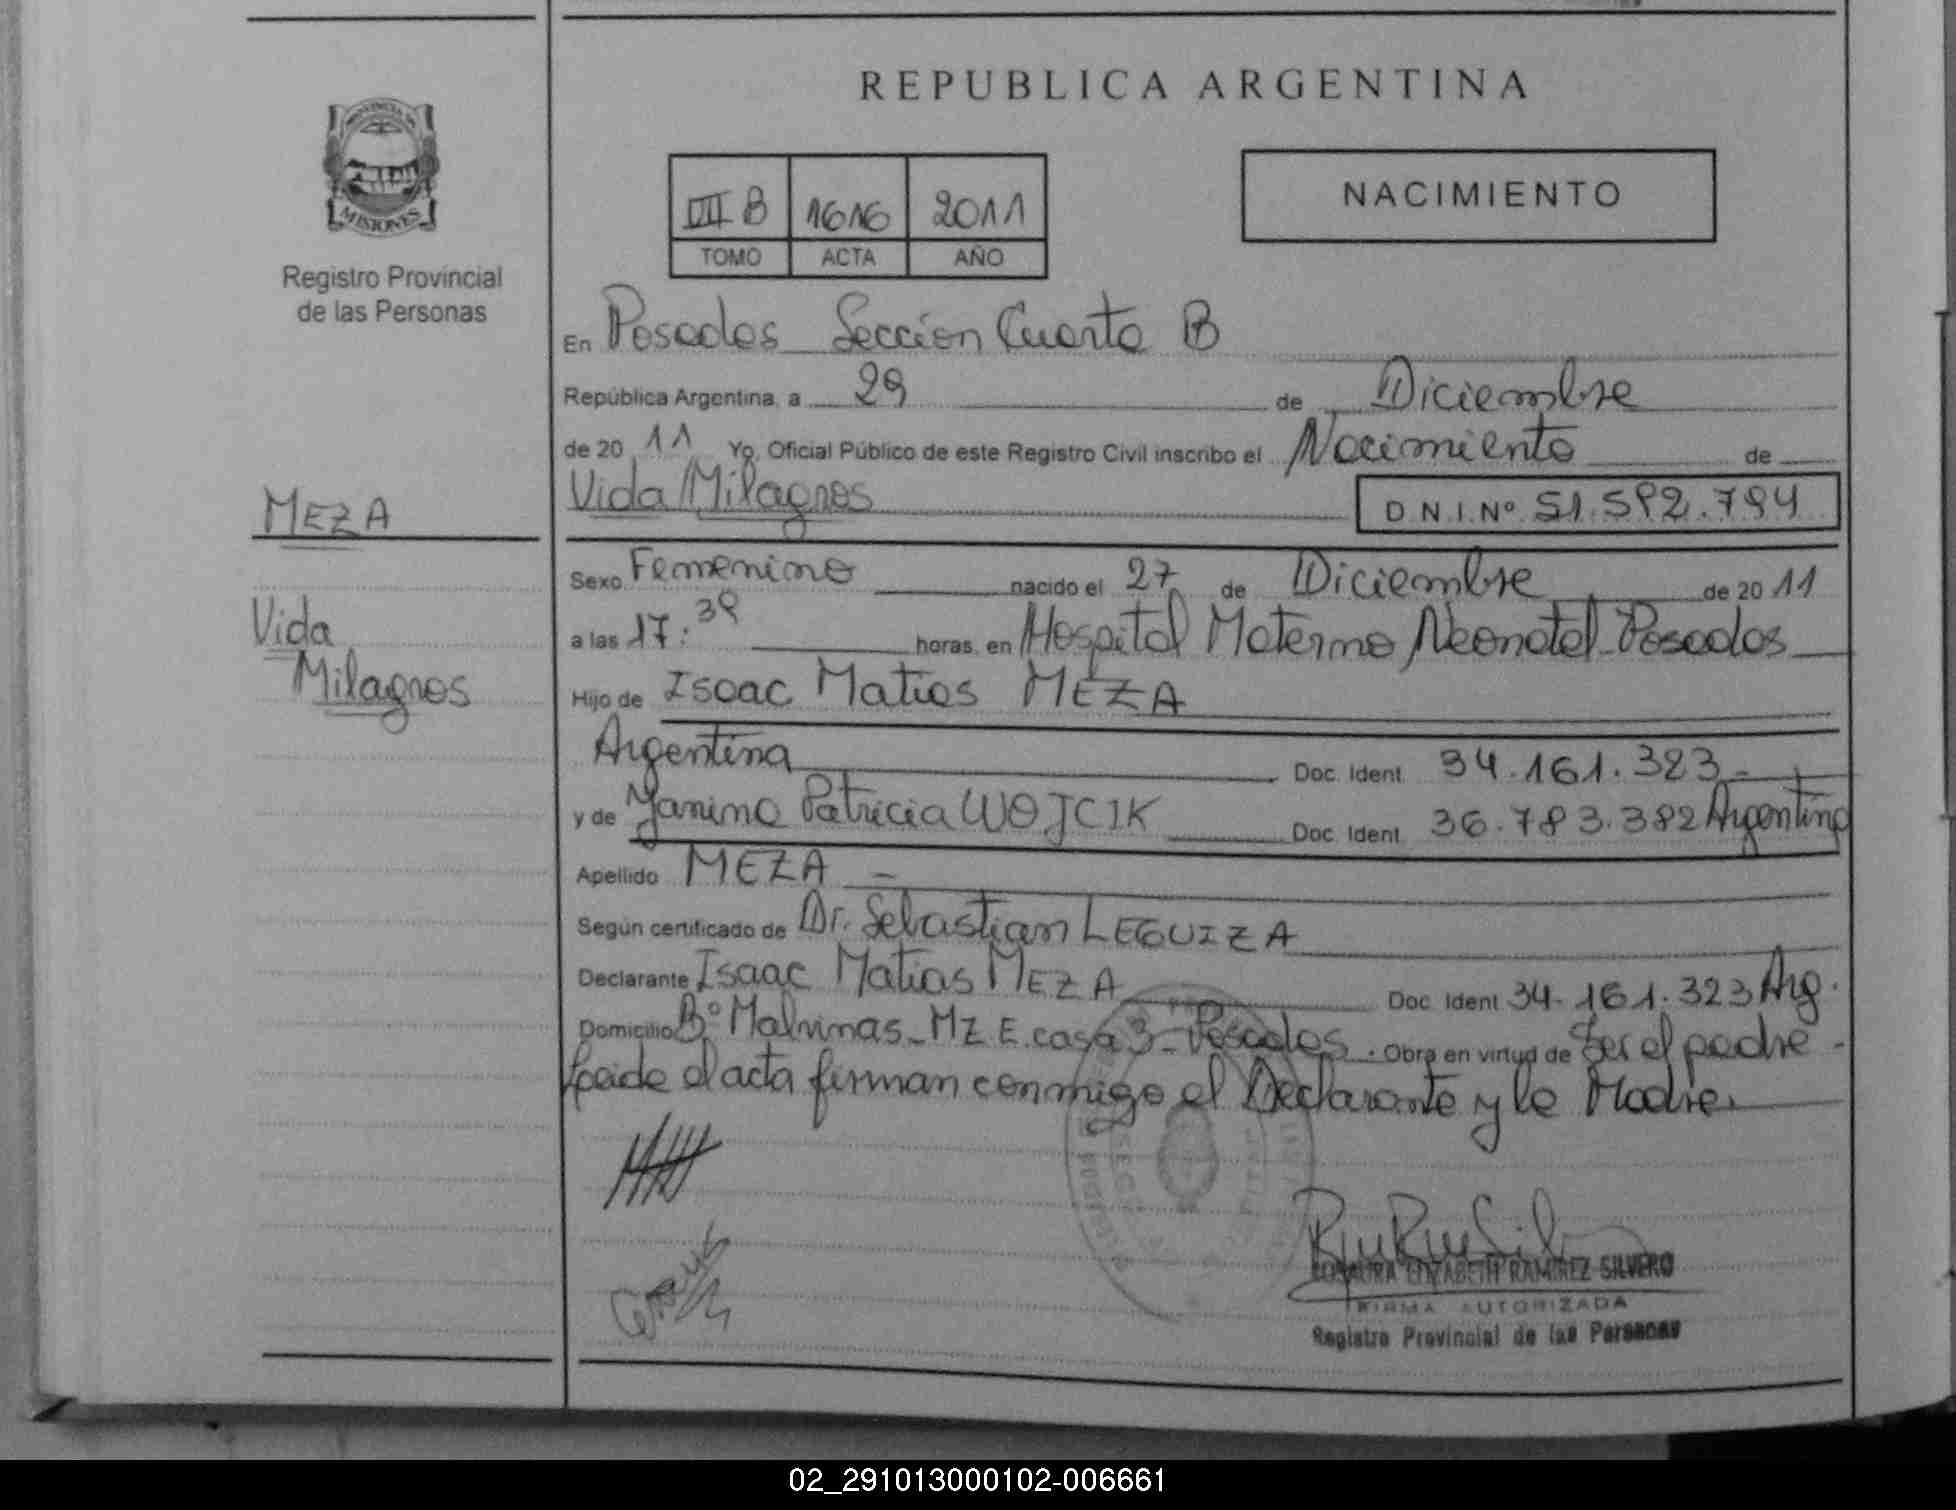 REPUBLICA ARGENTINA
PROVINCIA DE
MISIONES
Registro Provincial
de las Personas
III B 1616 2011
TOMO ACTA AÑO
NACIMIENTO
En Posadas Sección Cuarta B
República Argentina, a 29 de Diciembre
de 20 11 Yo, Oficial Público de este Registro Civil inscribo el Nacimiento de
Vida Milagros D.N.I.Nº 51.592.794
MEZA
Vida
Milagros
Sexo Femenino nacido el 27 de Diciembre de 20 11
a las 17:39 horas, en Hospital Materno Neonatal Posadas
Hijo de Isaac Matias MEZA
Argentina Doc. Ident. 34.161.323
y de Yanina Patricia WOJCIK Doc. Ident. 36.783.382 Argentina
Apellido MEZA
Según certificado de Dr. Sebastian LEGUIZA
Declarante Isaac Matias MEZA Doc. Ident 34.161.323 Arg.
Domicilio Bº Malvinas - MZ E casa 3 - Posadas. Obra en virtud de Ser el padre -
Leida el acta firman conmigo el Declarante y la Madre.
ROSAURA ELIZABETH RAMIREZ SILVERO
FIRMA AUTORIZADA
Registro Provincial de las Personas
02_291013000102-006661